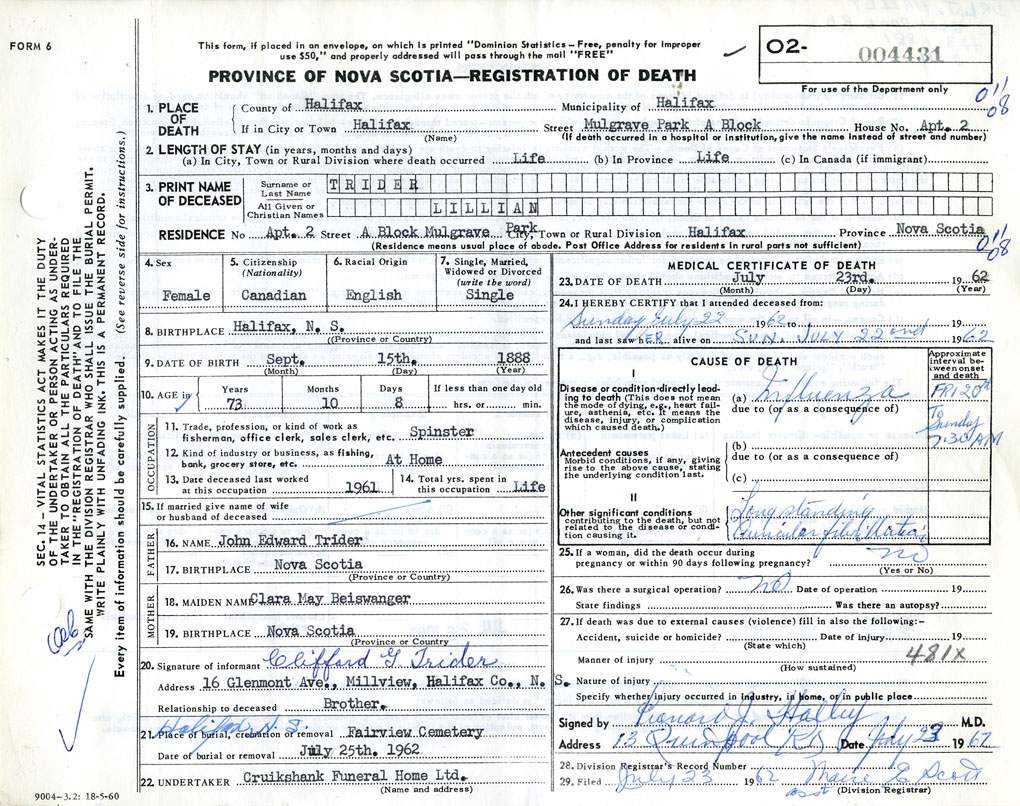 FORM 6
This form, if placed in an envelope, on which is printed "Dominion Statistics – Free, penalty for improper
use $50," and properly addressed will pass through the mail "FREE"
PROVINCE OF NOVA SCOTIA—REGISTRATION OF DEATH
O2- 004431
For use of the Department only
SEC. 14 – VITAL STATISTICS ACT MAKES IT THE DUTY
OF THE UNDERTAKER OR PERSON ACTING AS UNDER-
TAKER TO OBTAIN ALL THE PARTICULARS REQUIRED
IN THE "REGISTRATION OF DEATH" AND TO FILE THE
SAME WITH THE DIVISION REGISTRAR WHO SHALL ISSUE THE BURIAL PERMIT.
WRITE PLAINLY WITH UNFADING INK. THIS IS A PERMANENT RECORD.
Every item of information should be carefully supplied. (See reverse side for instructions.)
1. PLACE OF DEATH
County of Halifax Municipality of Halifax
If in City or Town Halifax Street Mulgrave Park A Block House No. Apt. 2
(Name) (If death occurred in a hospital or institution, give the name instead of street and number)
2. LENGTH OF STAY (in years, months and days)
(a) In City, Town or Rural Division where death occurred Life (b) In Province Life (c) In Canada (if immigrant)
3. PRINT NAME OF DECEASED
Surname or Last Name TRIDER
All Given or Christian Names LILLIAN
RESIDENCE No Apt. 2 Street A Block Mulgrave Park City, Town or Rural Division Halifax Province Nova Scotia
(Residence means usual place of abode. Post Office Address for residents in rural parts not sufficient)
4. Sex
Female
5. Citizenship
(Nationality)
Canadian
6. Racial Origin
English
7. Single, Married,
Widowed or Divorced
(write the word)
Single
8. BIRTHPLACE Halifax, N. S.
(Province or Country)
9. DATE OF BIRTH Sept. 15th. 1888
(Month) (Day) (Year)
10. AGE in
Years Months Days If less than one day old
73 10 8 hrs. or min.
OCCUPATION
11. Trade, profession, or kind of work as
fisherman, office clerk, sales clerk, etc. Spinster
12. Kind of industry or business, as fishing,
bank, grocery store, etc. At Home
13. Date deceased last worked
at this occupation 1961
14. Total yrs. spent in
this occupation Life
15. If married give name of wife
or husband of deceased
FATHER
16. NAME John Edward Trider
17. BIRTHPLACE Nova Scotia
(Province or Country)
MOTHER
18. MAIDEN NAME Clara May Beiswanger
19. BIRTHPLACE Nova Scotia
(Province or Country)
20. Signature of informant Clifford G Trider
Address 16 Glenmont Ave., Millview, Halifax Co., N. S.
Relationship to deceased Brother.
Halifax, N. S.
21. Place of burial, cremation or removal Fairview Cemetery
Date of burial or removal July 25th. 1962
22. UNDERTAKER Cruikshank Funeral Home Ltd.
(Name and address)
9004–3.2: 18-5-60
MEDICAL CERTIFICATE OF DEATH
23. DATE OF DEATH July 23rd. 1962
(Month) (Day) (Year)
24. I HEREBY CERTIFY that I attended deceased from:
Sunday July 22 1962 to 19
and last saw hER alive on SUN. JULY 22nd 1962
CAUSE OF DEATH
Approximate
interval be-
tween onset
and death
I
Disease or condition directly lead-
ing to death (This does not mean
the mode of dying, e.g., heart fail-
ure, asthenia, etc. It means the
disease, injury, or complication
which caused death.)
(a) Influenza
due to (or as a consequence of)
FRI 20th
To
Sunday
7:30 AM
Antecedent causes
Morbid conditions, if any, giving
rise to the above cause, stating
the underlying condition last.
(b)
due to (or as a consequence of)
(c)
II
Other significant conditions
contributing to the death, but not
related to the disease or condi-
tion causing it.
Longstanding
Auricular fibrillation
25. If a woman, did the death occur during
pregnancy or within 90 days following pregnancy? no
(Yes or No)
26. Was there a surgical operation? no Date of operation 19
State findings Was there an autopsy?
27. If death was due to external causes (violence) fill in also the following:–
Accident, suicide or homicide? Date of injury 19
(State which)
Manner of injury 481X
(How sustained)
Nature of injury
Specify whether injury occurred in industry, in home, or in public place
Signed by M.D.
Address 13 Quinpool Rd Date July 23 1962
28. Division Registrar's Record Number
29. Filed July 23 1962 Marie E Scott
asst (Division Registrar)